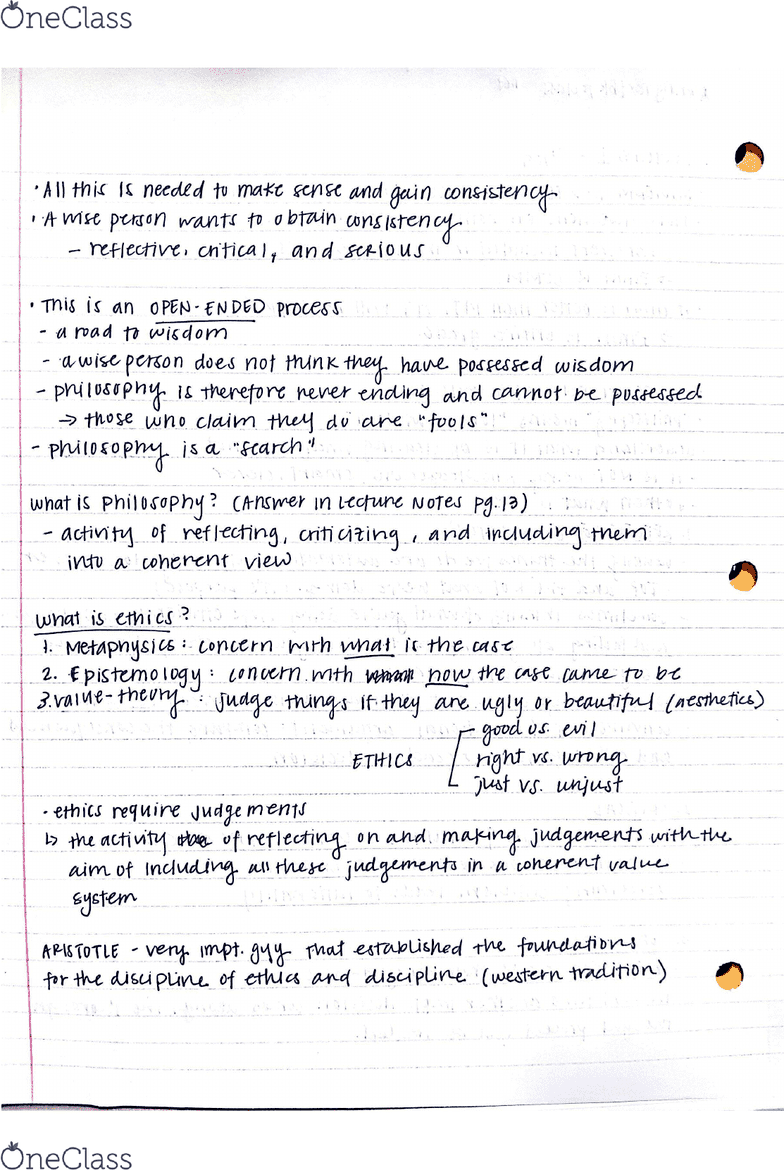 OneClass
· All this is needed to make sense and gain consistency
· A wise person wants to obtain consistency
- reflective, critical, and serious
· This is an OPEN-ENDED process
- a road to wisdom
- a wise person does not think they have possessed wisdom
- philosophy is therefore never ending and cannot be possessed
→ those who claim they do are "fools"
- philosophy is a "search"
What is philosophy? (Answer in Lecture Notes pg. 13)
- activity of reflecting, criticizing, and including them
into a coherent view
What is ethics?
1. Metaphysics: concern with what is the case
2. Epistemology: concern with how the case came to be
3. value-theory: judge things if they are ugly or beautiful (aesthetics)
good vs. evil
ETHICS right vs. wrong
just vs. unjust
· ethics require judgements
↳ the activity of reflecting on and making judgements with the
aim of including all these judgements in a coherent value
system
ARISTOTLE - very impt. guy that established the foundations
for the discipline of ethics and discipline (western tradition)
OneClass